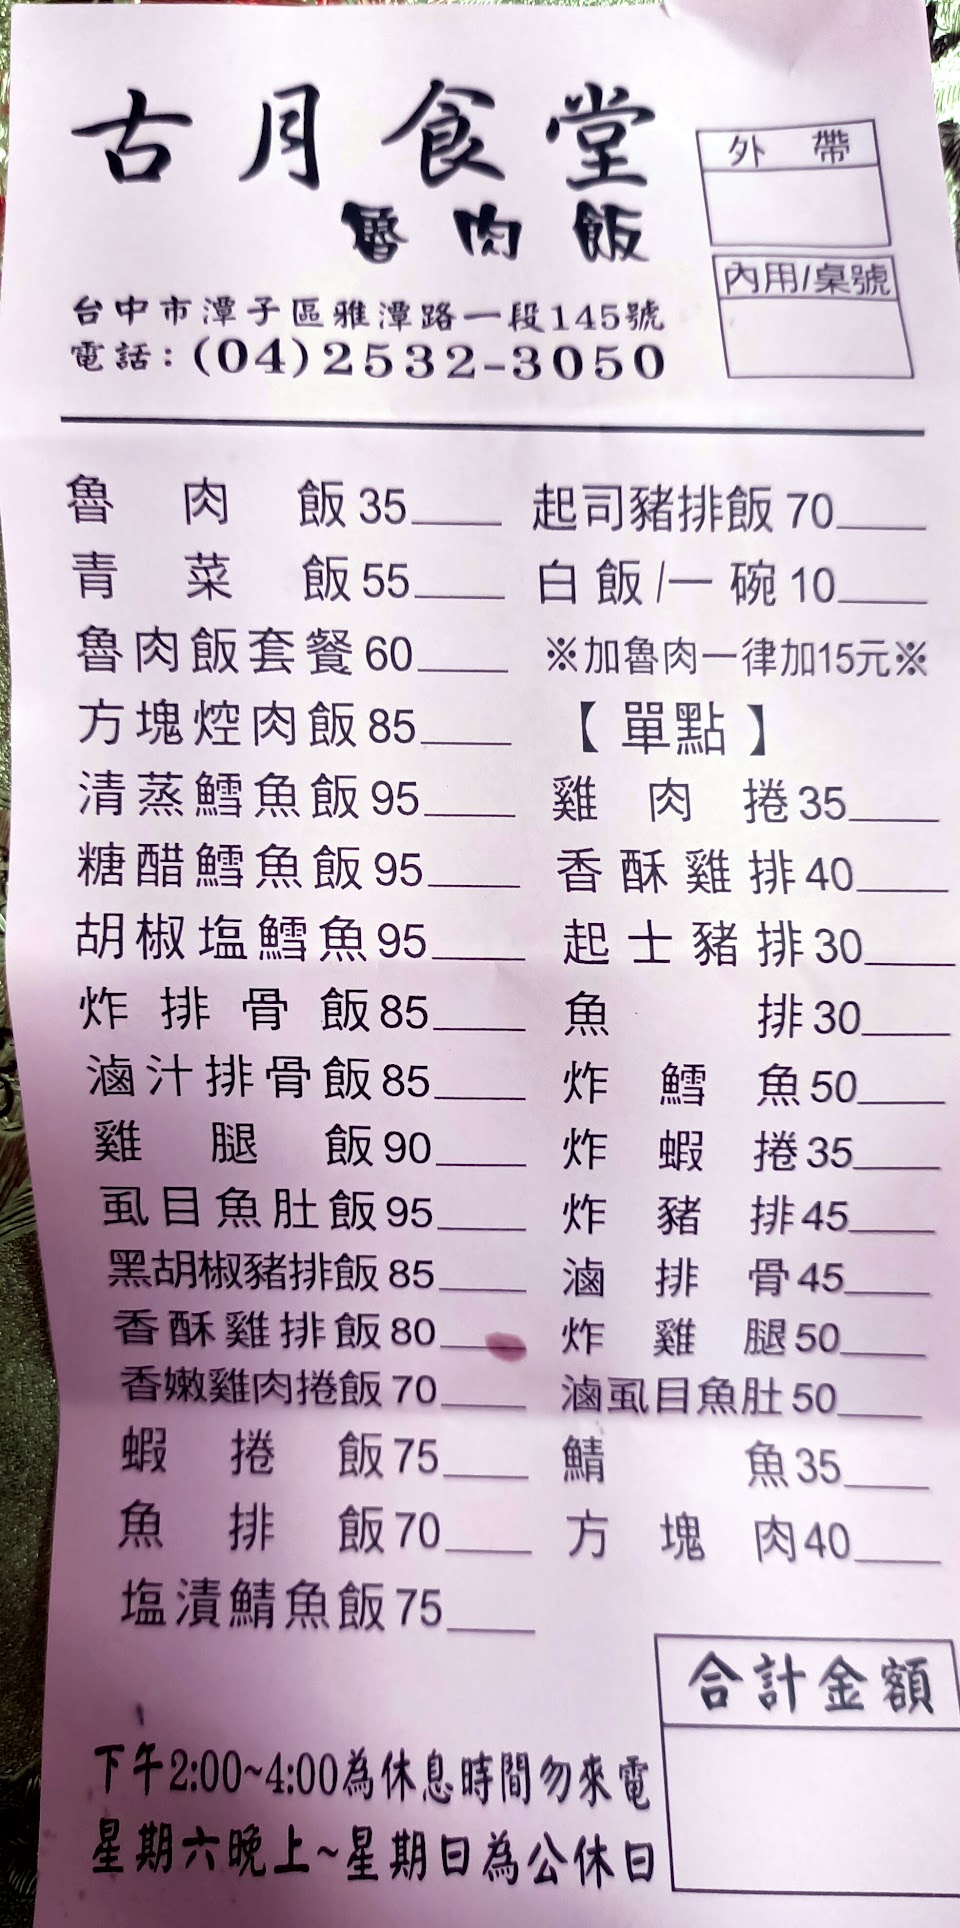 古月食堂
魯肉飯
台中市潭子區雅潭路一段145號
電話：(04)2532-3050
外帶
內用/桌號
魯肉飯35
青菜飯55
魯肉飯套餐60
方塊焢肉飯85
清蒸鱈魚飯95
糖醋鱈魚飯95
胡椒塩鱈魚95
炸排骨飯85
滷汁排骨飯85
雞腿飯90
虱目魚肚飯95
黑胡椒豬排飯85
香酥雞排飯80
香嫩雞肉捲飯70
蝦捲飯75
魚排飯70
塩漬鯖魚飯75
起司豬排飯70
白飯/一碗10
※加魯肉一律加15元※
【單點】
雞肉捲35
香酥雞排40
起士豬排30
魚排30
炸鱈魚50
炸蝦捲35
炸豬排45
滷排骨45
炸雞腿50
滷虱目魚肚50
鯖魚35
方塊肉40
合計金額
下午2:00~4:00為休息時間勿來電
星期六晚上~星期日為公休日